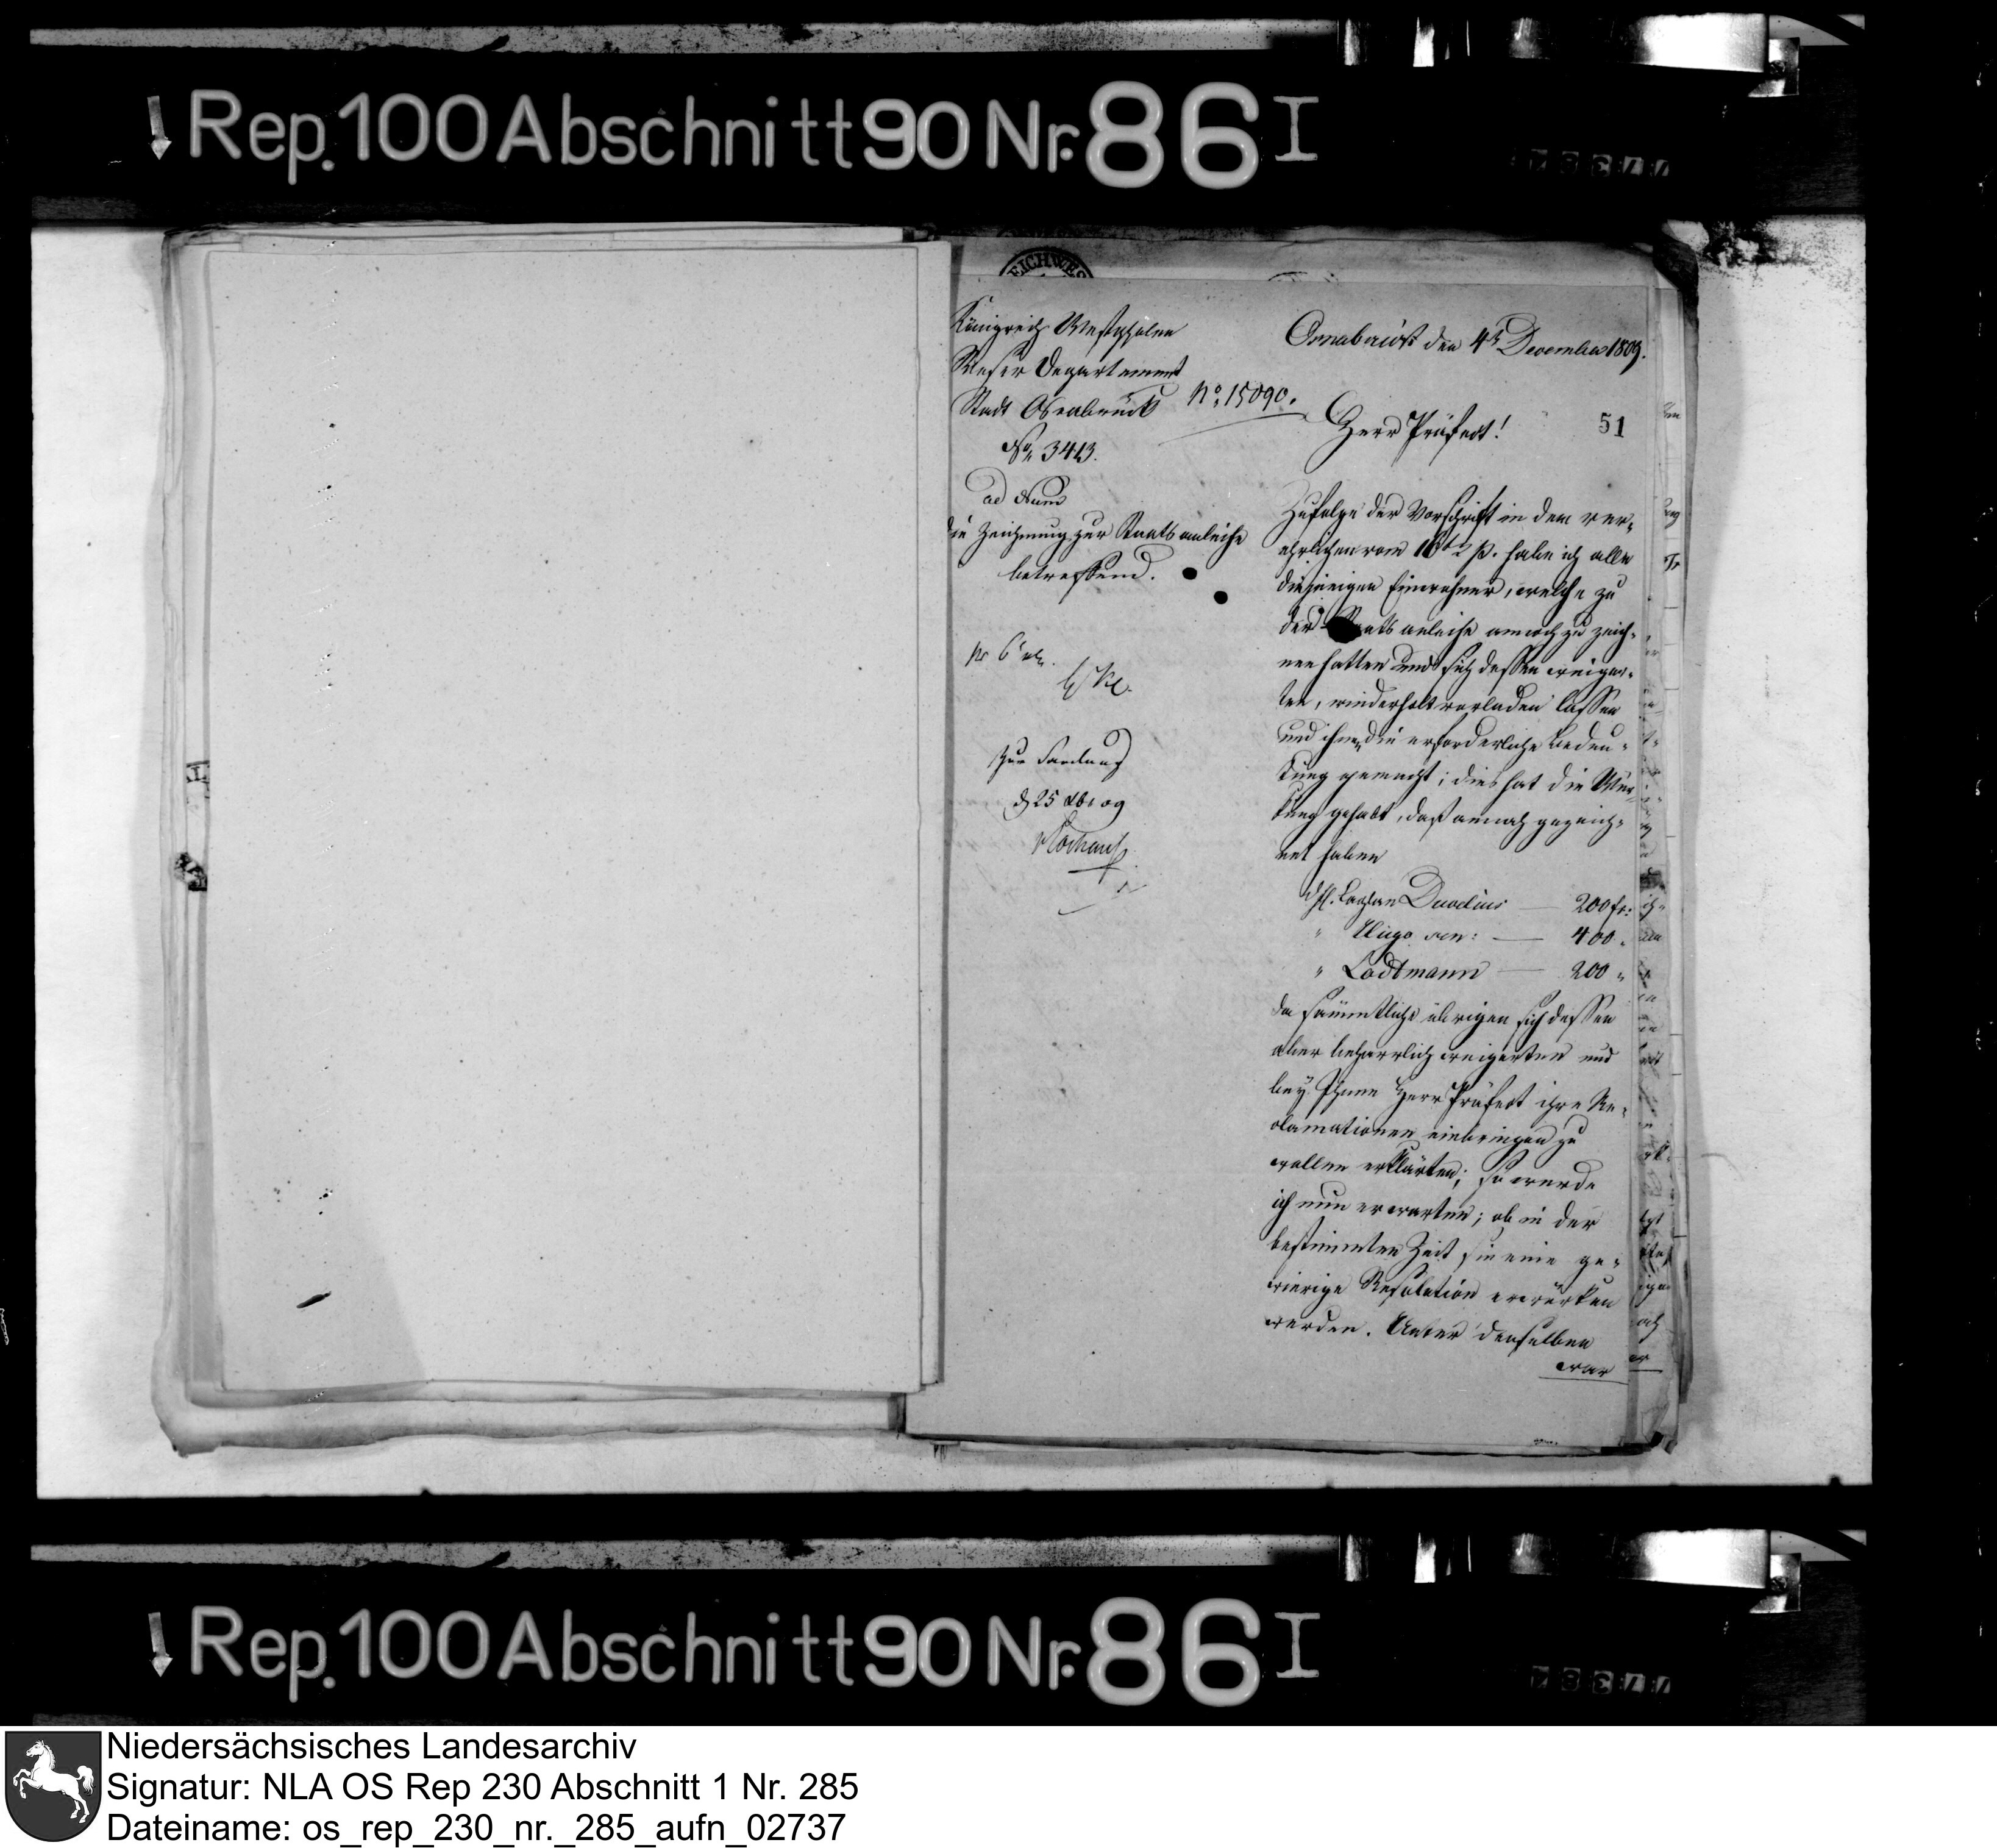 Rep. 100 Abschnitt 90 Nr. 86 I
EICH WES
Königreich Westphalen
Weser Departement
Stadt Osnabrück
No. 3413.
ad Num
die Zeichnung zur Staatsanleihe
betreffend.
No. 15090.
Osnabrück den 4t December 1809.
Herr Präfect!
51
Zufolge der Vorschrift in dem ver-
ehrlichen vom 16ten p. habe ich alle
diejenigen Einwohner, welche zu
der Staatsanleihe annoch zu zeich-
nen hatten und sich dessen weiger-
ten, wiederholt vorladen lassen
und ihnen die erforderliche Bedeu-
tung gemacht; dies hat die Wür-
kung gehabt, daß annoch gezeich-
net haben
200 fr:
" Hugo sen: — 400 "
" Lodtmann — 200 "
da sämmtliche übrigen sich dessen
aber beharrlich weigerten und
bey Ihnen Herr Präfect ihre Re-
clamationen einbringen zu
wollen erklärten; so werde
ich nun erwarten; ob in der
bestimmten Zeit sie eine ge-
wierige Resolution erwürken
werden. Unter denselben
war
d 25 Xbr 09
Rep. 100 Abschnitt 90 Nr. 86 I
Niedersächsisches Landesarchiv
Signatur: NLA OS Rep 230 Abschnitt 1 Nr. 285
Dateiname: os_rep_230_nr._285_aufn_02737